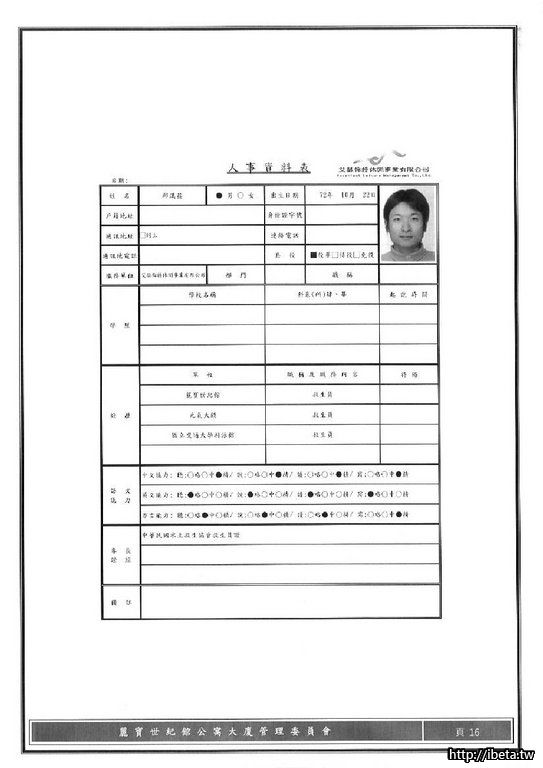 人事資料表
艾騰翰特休閒事業有限公司
日期:
姓名 ●男○女 出生日期 72年 10月 22日
戶籍地址 身份證字號
通訊地址 □同上 連絡電話
通訊地電話 兵役 ■役畢□待役□免役
服務單位 部門 職稱
學歷 學校名稱 科系(所)肄、畢 起訖時間
經歷 單位 職稱及職務內容 待遇
麗寶世紀館 救生員
元氣大鎮 救生員
國立交通大學游泳館 救生員
語文能力 中文能力: 聽:○略○中●精/ 說:○略○中●精/ 讀:○略○中●精/ 寫:○略○中●精
英文能力: 聽:●略○中○精/ 說:●略○中○精/ 讀:●略○中○精/ 寫:●略○中○精
方言能力: 聽:○略●中○精/ 說:○略●中○精/ 讀:○略●中○精/ 寫:○略○中●精
專長證照 中華民國水上救生協會救生員證
備註
麗寶世紀館公寓大廈管理委員會 頁 16
http://ibeta.tw